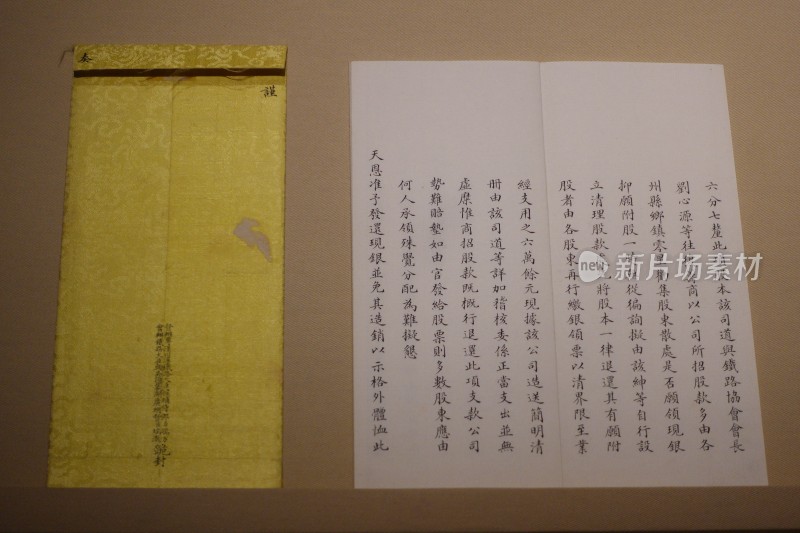 六分七釐此本該司道與鐵路協會會長
劉心源等往商以公司所招股款多由各
州縣鄉鎮零集股東散處是否願領現銀
抑願附股一從徧詢擬由該紳等自行設
立清理股款將股本一律退還具有願附
股者由各股東再行繳銀領票以清界限至業
經支用之六萬餘元現據該公司造送簡明清
冊由該司道等詳加稽核委係正當支出並無
虛糜惟商招股款既概行退還此項支款公司
勢難賠墊如由官發給股票則多數股東應由
何人承領殊覺分配為難擬懇
天恩准予發還現銀並免其造銷以示格外體恤此
謹
奏
封
new